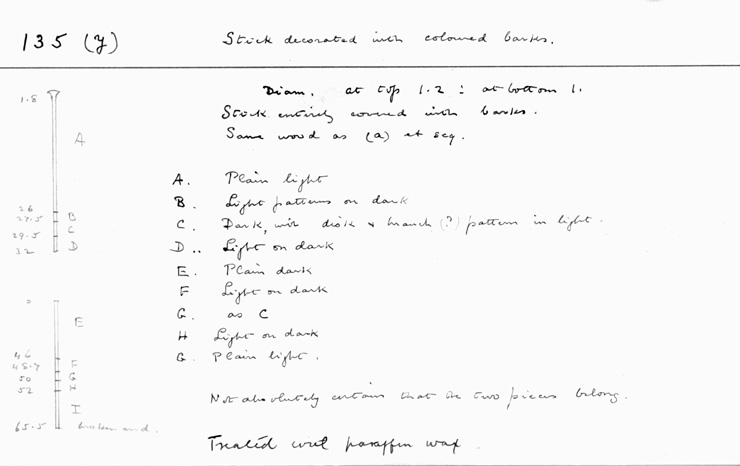 135 (y)
Stick decorated with coloured barks.
Diam. at top 1.2 : at bottom 1.
Stick entirely covered with barks.
Same wood as (a) et seq.
A. Plain light
B. Light patterns on dark
C. Dark, with disk & branch (?) pattern in light.
D .. Light on dark
E. Plain dark
F Light on dark
G. as C
H Light on dark
G. Plain light.
Not absolutely certain that the two pieces belong.
Treated with paraffin wax
1.8
A
26
27.5 B
C
29.5
D
32
E
46
F
48.7
G
50
H
52
I
65.5 broken end.